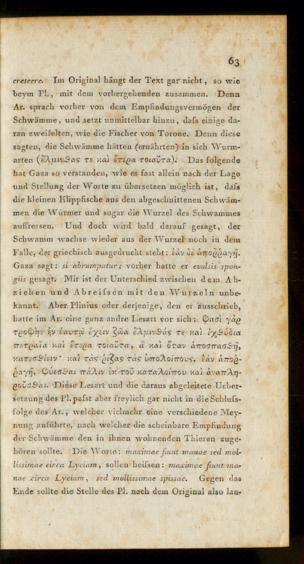 63
crescere. Im Original hängt der Text gar nicht, so wie
beym Pl., mit dem vorhergehenden zusammen. Denn
Ar. sprach vorher von dem Empfindungsvermögen der
Schwämme, und setzt unmittelbar hinzu, daſs einige da-
ran zweifelten, wie die Fischer von Torone. Denn diese
sagten, die Schwämme hätten (ernährten) in sich Wurm-
arten (ἕλμινθας τε καὶ ἕτερα τοιαῦτα). Das folgende
hat Gaza so verstanden, wie es fast allein nach der Lage
und Stellung der Worte zu übersetzen möglich ist, daſs
die kleinen Klippfische aus den abgeschnittenen Schwäm-
men die Würmer und sogar die Wurzel des Schwammes
auffressen. Und doch wird bald darauf gesagt, der
Schwamm wachse wieder aus der Wurzel noch in dem
Falle, der griechisch ausgedruckt steht: ἐὰν δὲ ἀποῤῥαγῇ.
Gaza sagt: si abrumpatur; vorher hatte er evulsis spon-
giis gesagt. Mir ist der Unterschied zwischen dem Ab-
ziehen und Abreiſsen mit den Wurzeln unbe-
kannt. Aber Plinius oder derjenige, den er ausschrieb,
hatte im Ar. eine ganz andre Lesart vor sich: φασὶ γάρ
τροφὴν ἐν ἑαυτῷ ἔχειν ζῶα ἕλμινθάς τε καὶ ἰχθύδια
πετραῖα καὶ ἕτερα τοιαῦτα, ἃ καὶ ὅταν ἀποσπασθῇ,
κατεσθίειν· καὶ τὰς ῥίζας τὰς ὑπολοίπους, ἐὰν ἀποῤ-
ῥαγῇ, φύεσθαι πάλιν ἐκ τοῦ καταλοίπου καὶ ἀναπλη-
ροῦσθαι. Diese Lesart und die daraus geleitete Ueber-
setzung des Pl. paſst aber freylich gar nicht in die Schluſs-
folge des Ar., welcher vielmehr eine verschiedene Mey-
nung anführte, nach welcher die scheinbare Empfindung
der Schwämme den in ihnen wohnenden Thieren zuge-
hören sollte. Die Worte: maximae fiunt manae sed mol-
lissimae circa Lyciam, sollen heiſsen: maximae fiunt ma-
nae circa Lyciam, sed mollissimae spissae. Gegen das
Ende sollte die Stelle des Pl. nach dem Original also lau-